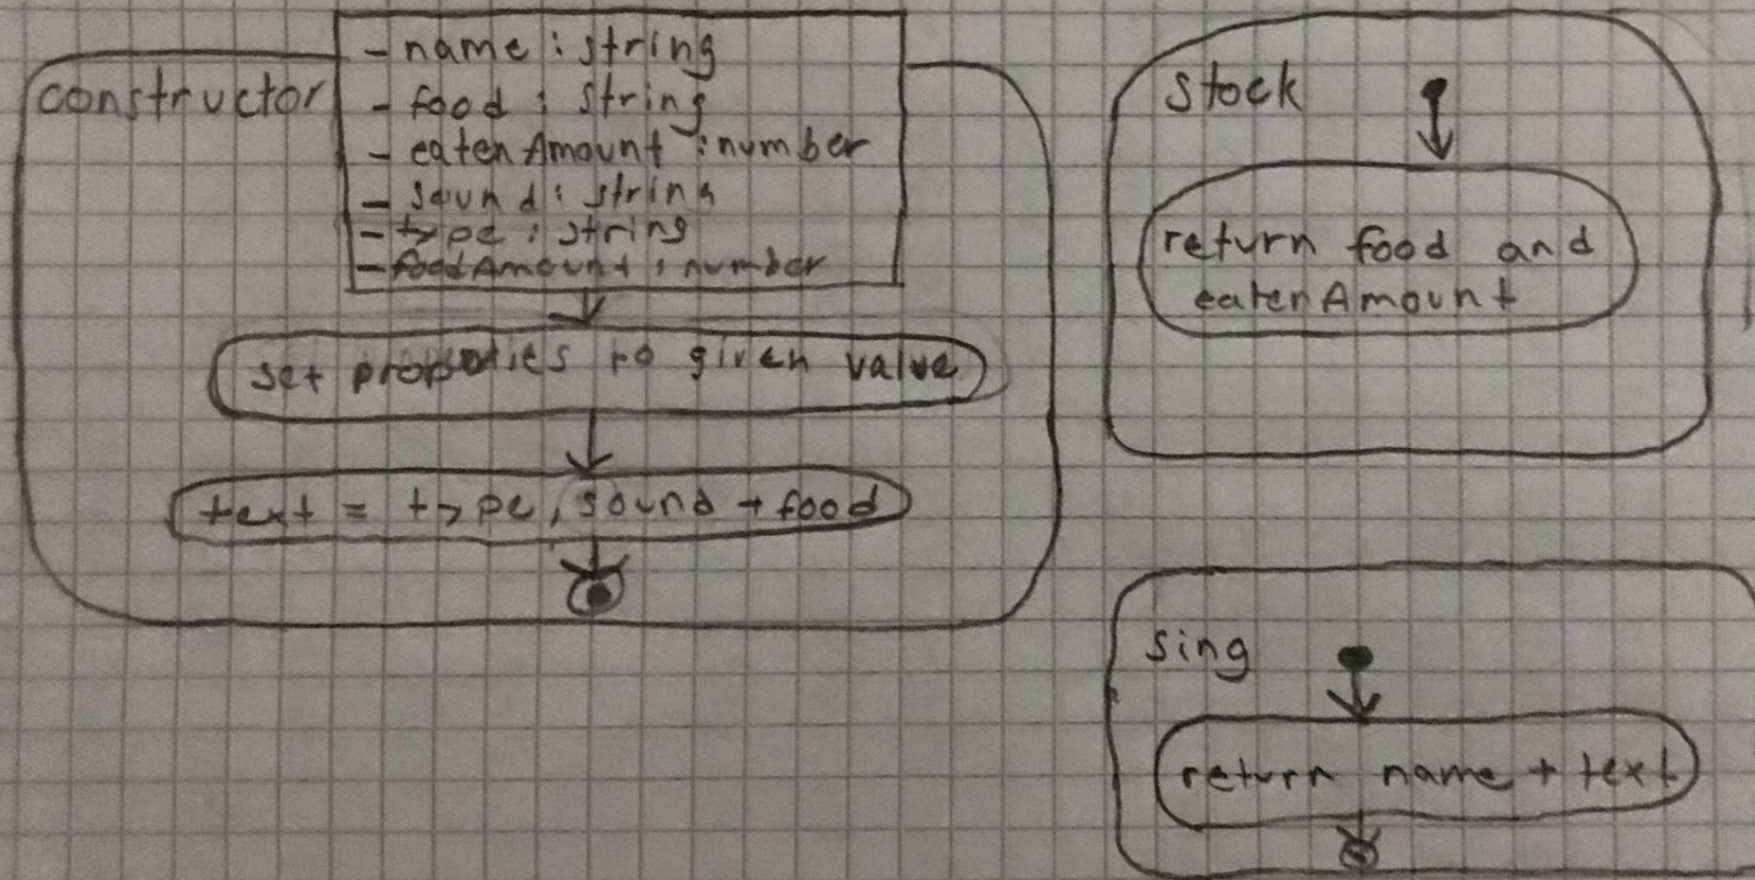 constructor
- name : string
- food : string
- eatenAmount : number
- sound : string
- type : string
- foodAmount : number
set properties to given value
text = type, sound + food
stock
return food and
eatenAmount
sing
return name + text